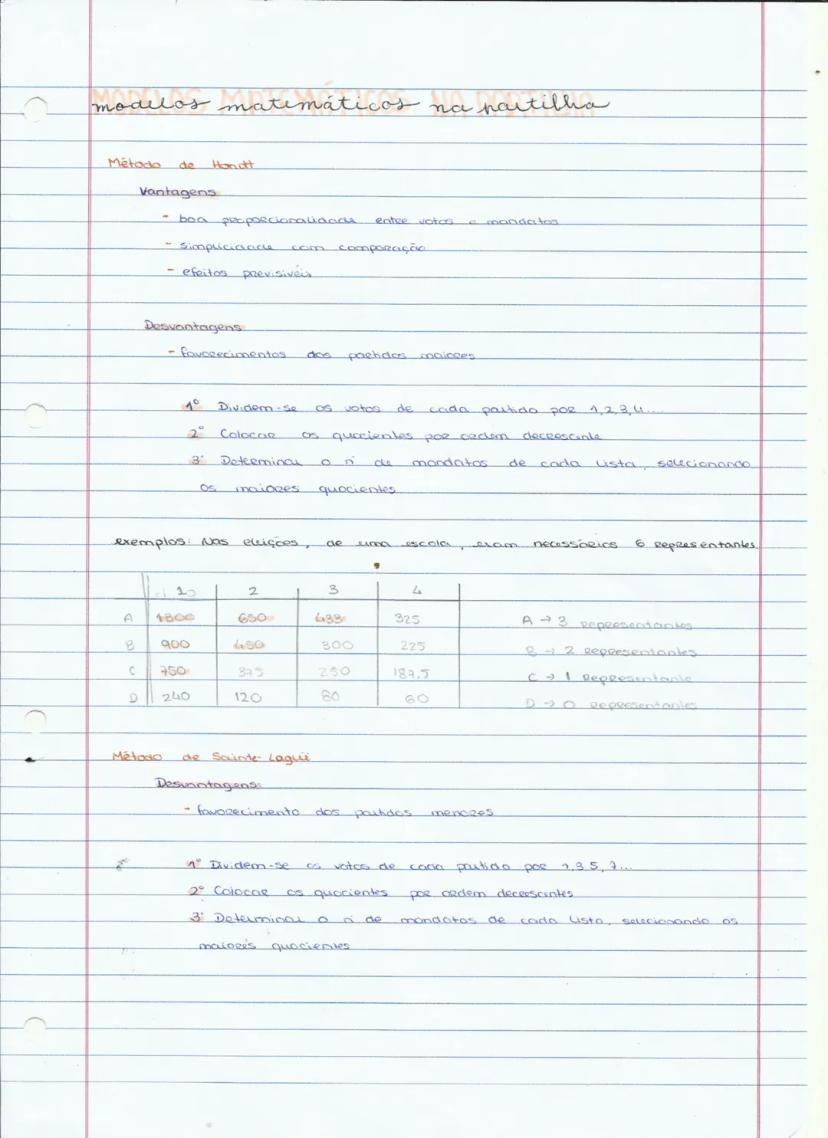 modelos matemáticos na partilha
Método de Hondt
Vantagens
- boa proporcionalidade entre votos e mandatos
- simplicidade com comparação
- efeitos previsíveis
Desvantagens
- favorecimentos dos partidos maiores
1º Dividem-se os votos de cada partido por 1,2,3,4...
2º Colocar os quocientes por ordem decrescente
3º Determinar o nº de mandatos de cada lista, selecionando
os maiores quocientes
exemplos: Nas eleições, de uma escola, eram necessários 6 representantes.
1 2 3 4
A 1300 650 433 325 A → 3 representantes
B 900 450 300 225 B → 2 representantes
C 750 375 250 187,5 C → 1 representante
D 240 120 80 60 D → 0 representantes
Método de Sainte-Lagüe
Desvantagens:
- favorecimento dos partidos menores
1º Dividem-se os votos de cada partido por 1,3,5,7...
2º Colocar os quocientes por ordem decrescentes
3º Determinar o nº de mandatos de cada lista, selecionando os
maiores quocientes